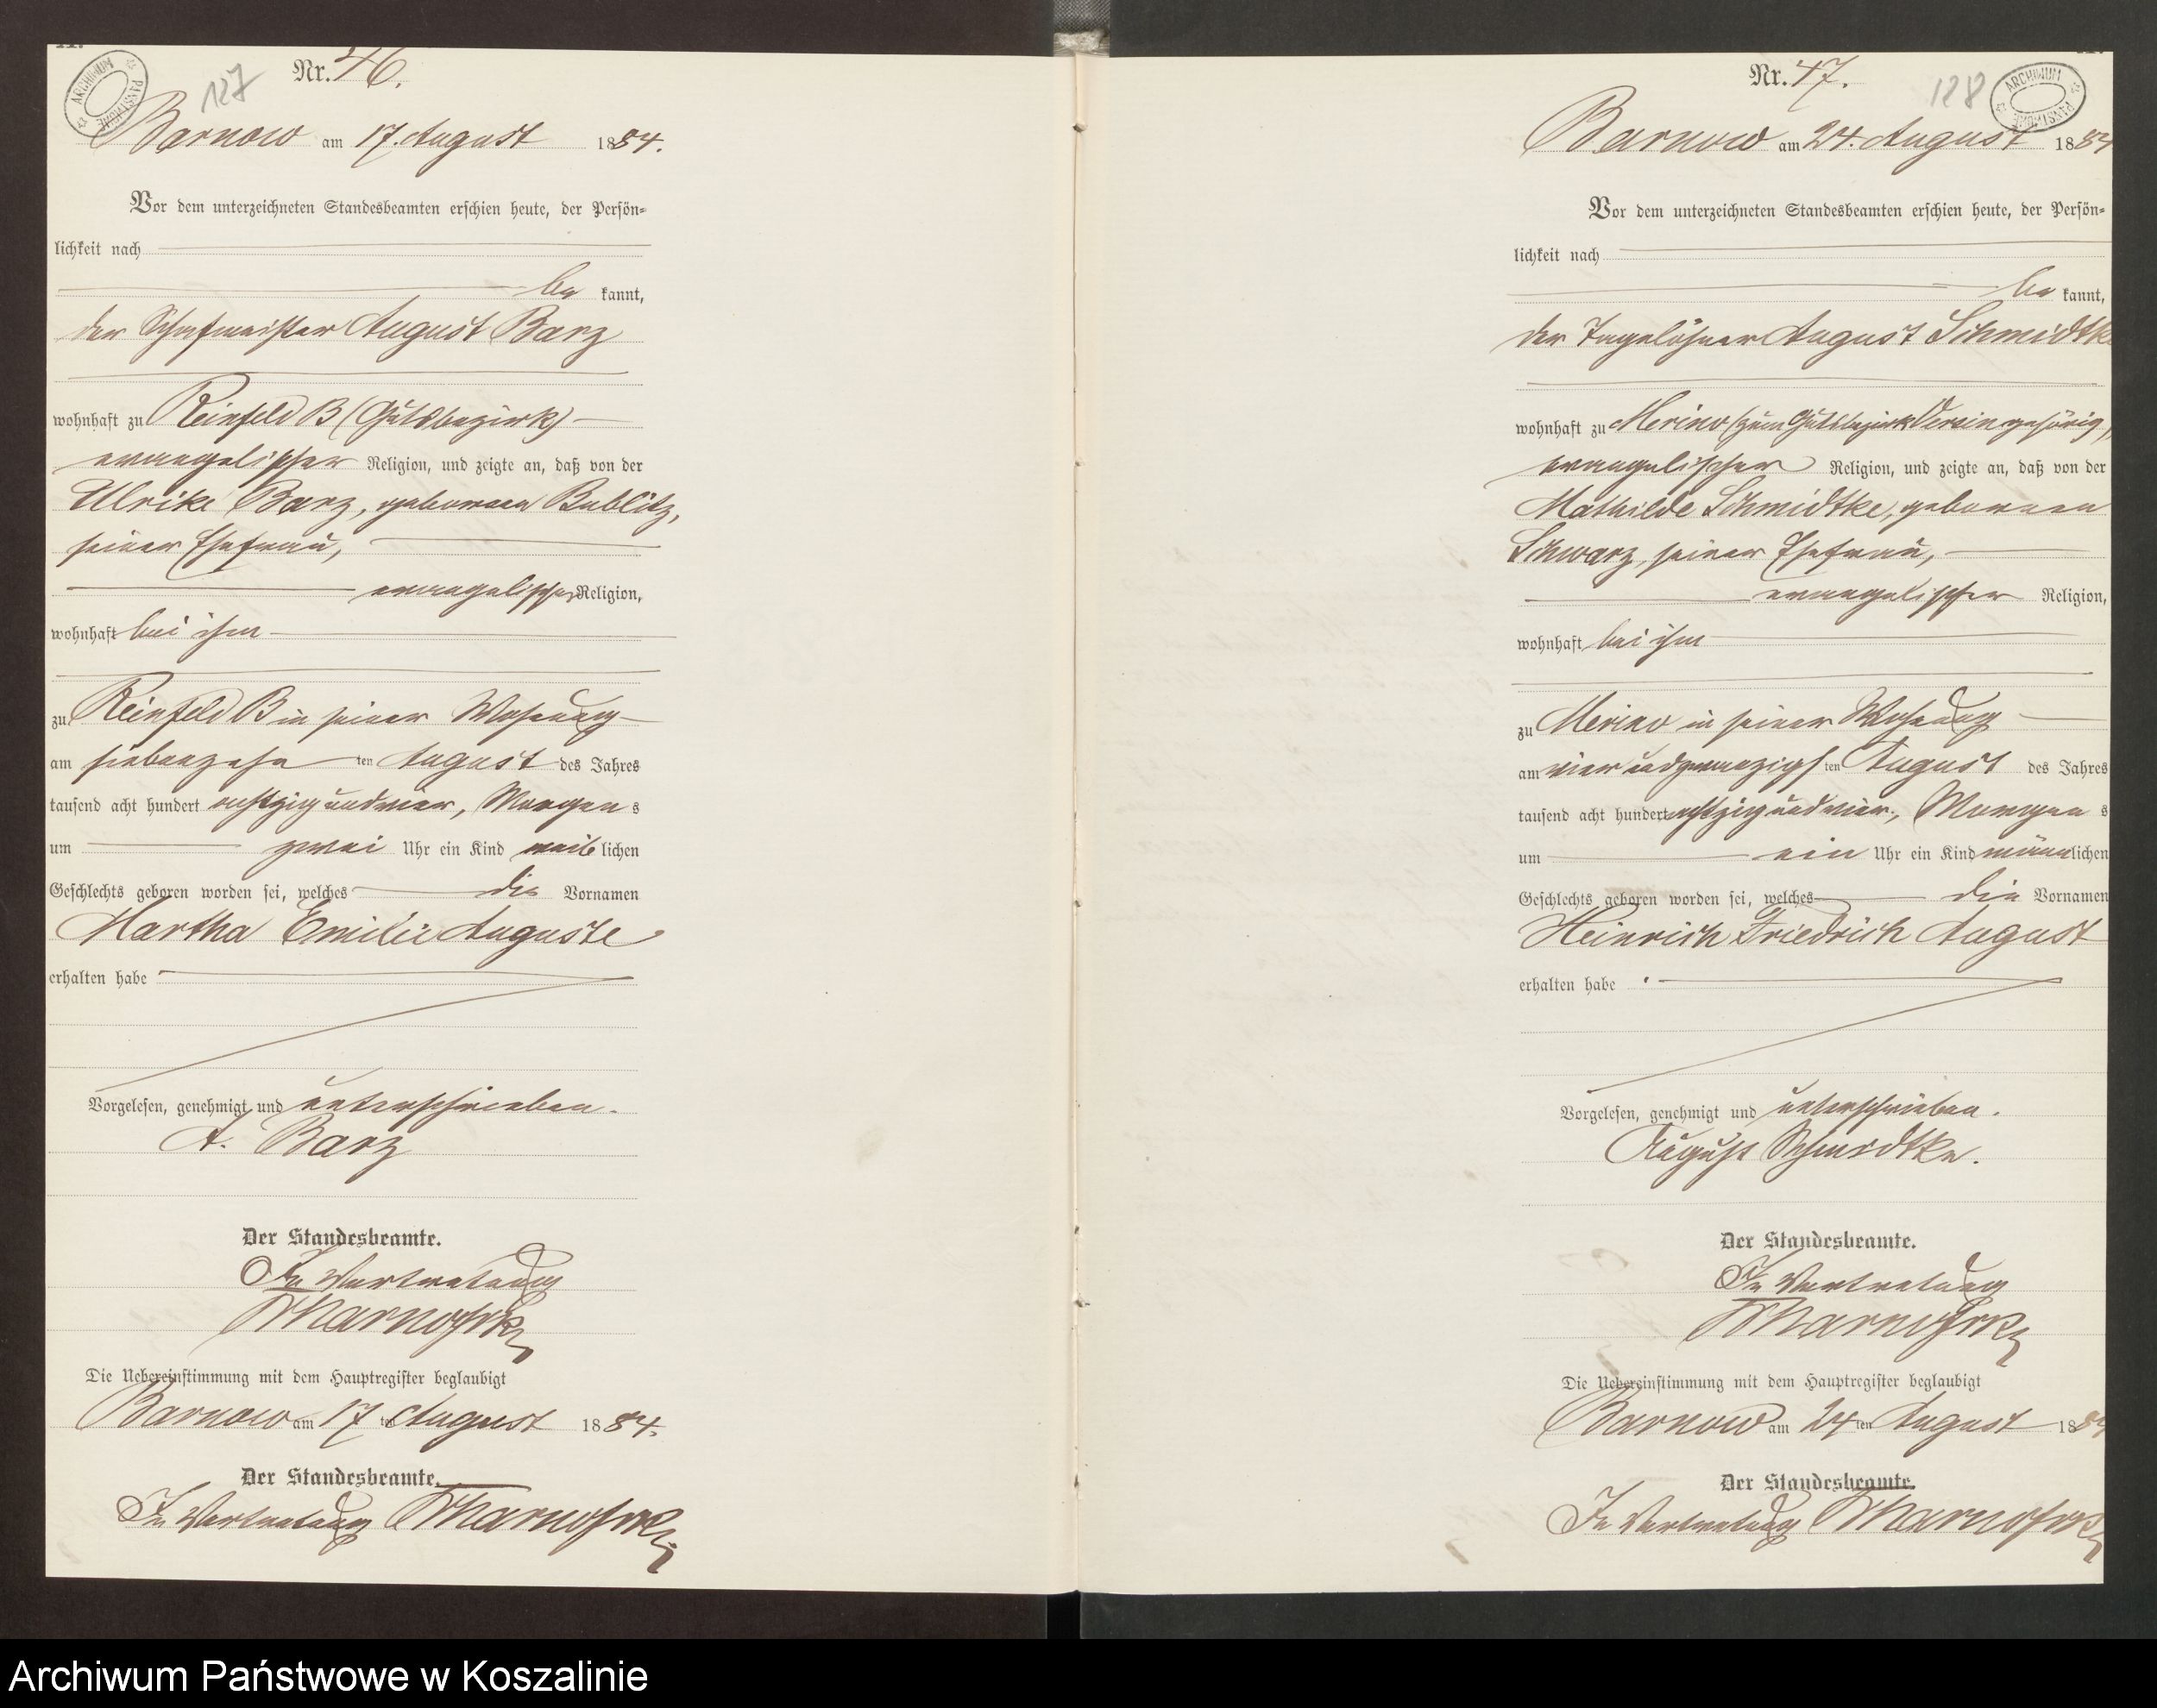 Nr. 46.
127
ARCHIWUM PAŃSTWOWE
Barnow am 17. August 1884.
Vor dem unterzeichneten Standesbeamten erschien heute, der Persön-
lichkeit nach
be kannt,
der Schafmeister August Barz
wohnhaft zu Reinfeld B (Gutsbezirk)
evangelischer Religion, und zeigte an, daß von der
Ulrike Barz, geborenen Bublitz,
seiner Ehefrau,
evangelischer Religion,
wohnhaft bei ihm
zu Reinfeld B in seiner Wohnung
am siebenzehn ten August des Jahres
tausend acht hundert achtzig und vier, Morgens
um zwei Uhr ein Kind weiblichen
Geschlechts geboren worden sei, welches die Vornamen
Martha Emilie Auguste
erhalten habe
Vorgelesen, genehmigt und unterschrieben.
A. Barz
Der Standesbeamte.
In Vertretung
Die Uebereinstimmung mit dem Hauptregister beglaubigt
Barnow am 17 ten August 1884.
Der Standesbeamte.
In Vertretung
Nr. 47.
128
ARCHIWUM PAŃSTWOWE
Barnow am 24. August 1884
Vor dem unterzeichneten Standesbeamten erschien heute, der Persön-
lichkeit nach
be kannt,
der Tagelöhner August Schmidtke
wohnhaft zu Merino (zum Gutsbezirk Versin gehörig)
evangelischer Religion, und zeigte an, daß von der
Mathilde Schmidtke, geborenen
Schwarz, seiner Ehefrau,
evangelischer Religion,
wohnhaft bei ihm
zu Merino in seiner Wohnung
am vier und zwanzigs ten August des Jahres
tausend acht hundert achtzig und vier, Morgens
um ein Uhr ein Kind männlichen
Geschlechts geboren worden sei, welches die Vornamen
Heinrich Friedrich August
erhalten habe
Vorgelesen, genehmigt und unterschrieben.
August Schmidtke.
Der Standesbeamte.
In Vertretung
Die Uebereinstimmung mit dem Hauptregister beglaubigt
Barnow am 24 ten August 1884
Der Standesbeamte.
In Vertretung
Archiwum Państwowe w Koszalinie